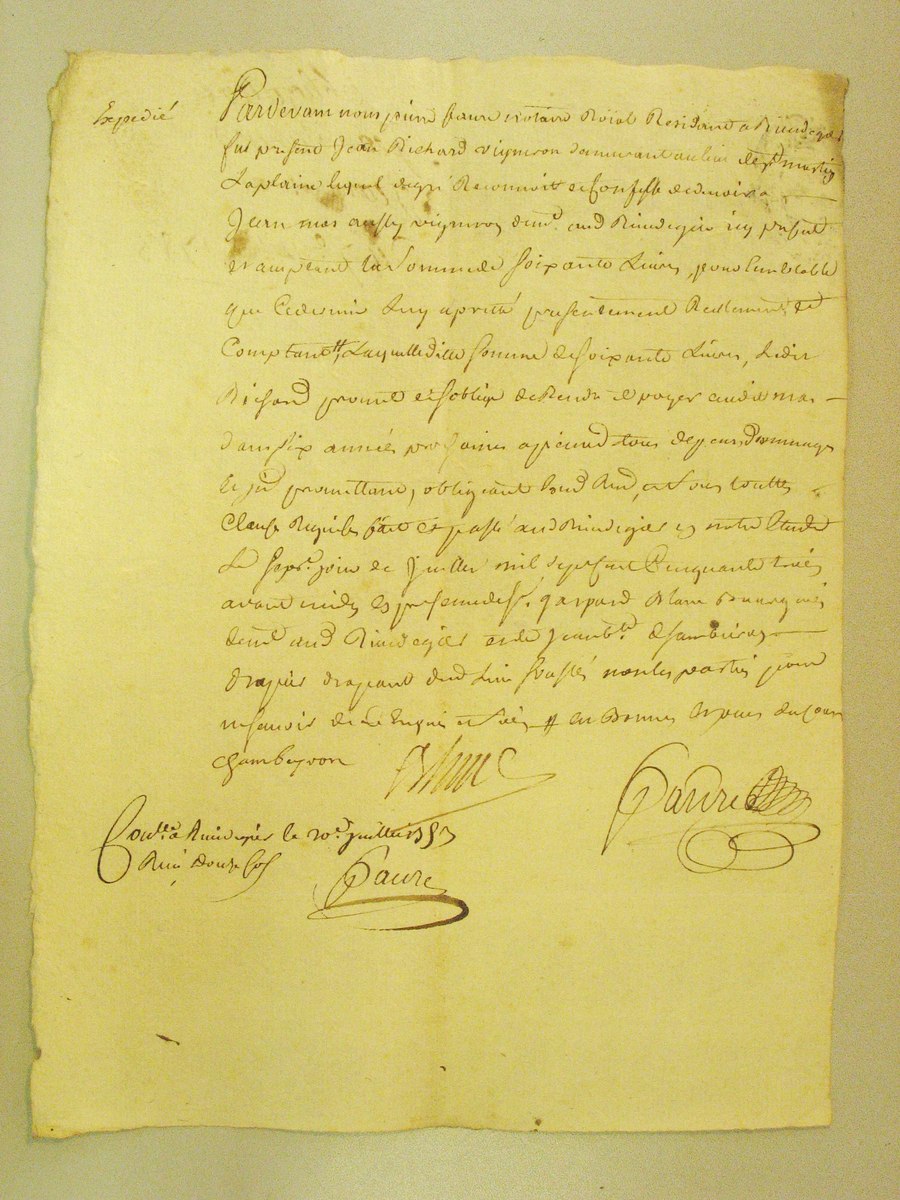 Expedié
Pardevant nous pierre faure notaire Roial Resident a Rivedegier
fut present Jean Richard vigneron demeurant au lieu de st martin
Laplaine lequel de gré Reconnoit et Confesse devoir a
Jean mas aussy vigneron demt. aud Rivedegier icy present
et acceptant la Somme de Soixante Livres, pour semblable
que Cedernier luy a pretté presentement Reelement et
Comptantt, Laquelle ditte somme de Soixante Livres, ledit
Richard promet et soblige de Rendre et payer audit mas
dans six années prochaines a peine de tous depens dommages
promettant, obligeant Rend Sous touttes
Clauses Requises fait et passé aud Rivedegier en notre Etude
Le sept. jour de Juillet mil sept cent Cinquante trois
avant midy En presence de sr. gaspard Blanc Bourgeois
demt aud Rivedegier et de Jean bte. Chambeyron
drapier drapant dud lieu non les parties pour
ne scavoir de ce Enquis et
chambeyron Blanc Faure
Conllé a Rivedegier le 20e. juillet 1753
Reçu douze sols
Faure